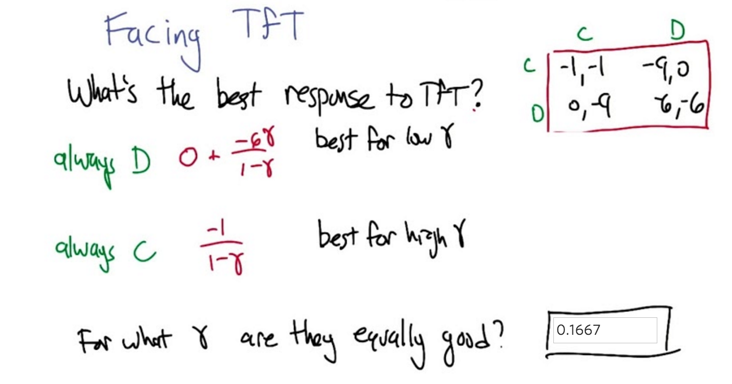 Facing TFT
C D
C -1,-1 -9,0
D 0,-9 -6,-6
What's the best response to TFT?
always D 0 + -6γ/1-γ best for low γ
always C -1/1-γ best for high γ
For what γ are they equally good? 0.1667